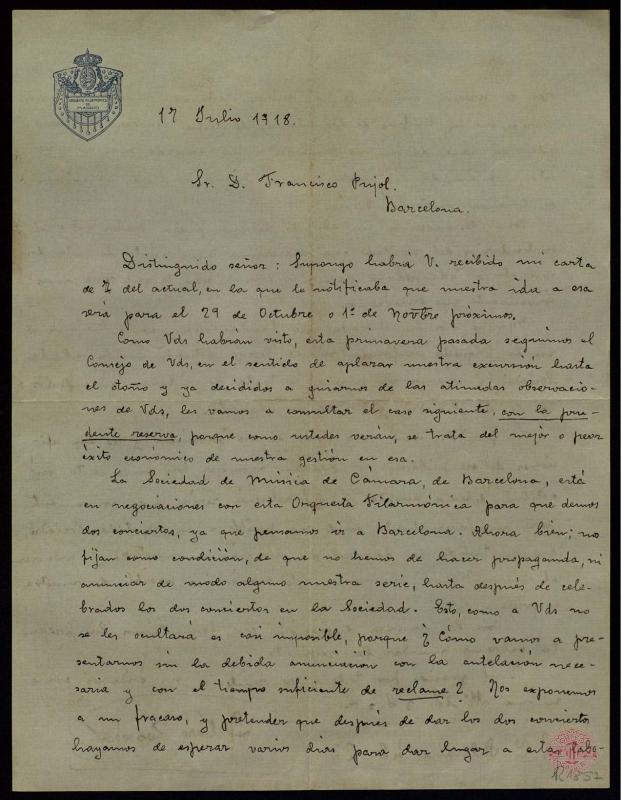 ORQUESTA FILARMÓNICA
DE
MADRID
17 Julio 1918.
Sr. D. Francisco Pujol.
Barcelona.
Distinguido señor: Supongo habrá V. recibido mi carta
de 7 del actual, en la que le notificaba que nuestra ida a esa
será para el 29 de Octubre o 1º de Novbre próximos.
Como Vds habrán visto, esta primavera pasada seguimos el
Consejo de Vds, en el sentido de aplazar nuestra excursión hasta
el otoño y ya decididos a guiarnos de las atinadas observacio-
nes de Vds, les vamos a consultar el caso siguiente, con la pru-
dente reserva, porque como ustedes verán, se trata del mejor o peor
éxito económico de nuestra gestión en esa.
La Sociedad de Música de Cámara, de Barcelona, está
en negociaciones con esta Orquesta Filarmónica para que demos
dos conciertos, ya que pensamos ir a Barcelona. Ahora bien; nos
fijan como condición, de que no hemos de hacer propaganda, ni
anunciar de modo alguno nuestra serie, hasta después de cele-
brados los dos conciertos en la Sociedad. Esto, como a Vds no
se les ocultará es casi imposible, porque ¿Cómo vamos a pre-
sentarnos sin la debida anunciación con la antelación nece-
saria y con el tiempo suficiente de reclame? Nos exponemos
a un fracaso, y pretender que después de dar los dos conciertos
hayamos de esperar varios dias para dar lugar a estas labo-
R 1857